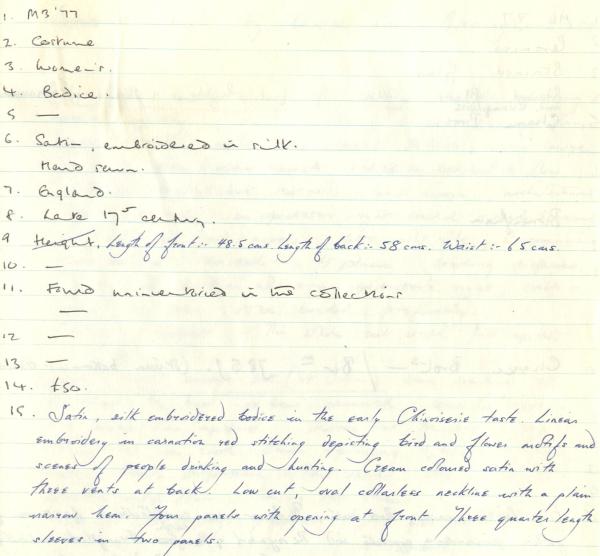 1. MB '77
2. Costume
3. Women's.
4. Bodice.
5 —
6. Satin, embroidered in silk.
Hand sewn.
7. England.
8. Late 17th century.
9 Height, Length of front :- 48.5 cms. Length of back :- 58 cms. Waist :- 65 cms.
10. —
11. Found uninventoried in the collections
—
12 —
13 —
14. £50.
15. Satin, silk embroidered bodice in the early Chinoiserie taste. Linear
embroidery in carnation red stitching depicting bird and flower motifs and
scenes of people drinking and hunting. Cream coloured satin with
three vents at back. Low cut, oval collarless neckline with a plain
narrow hem. Four panels with opening at front. Three quarter length
sleeves in two panels.